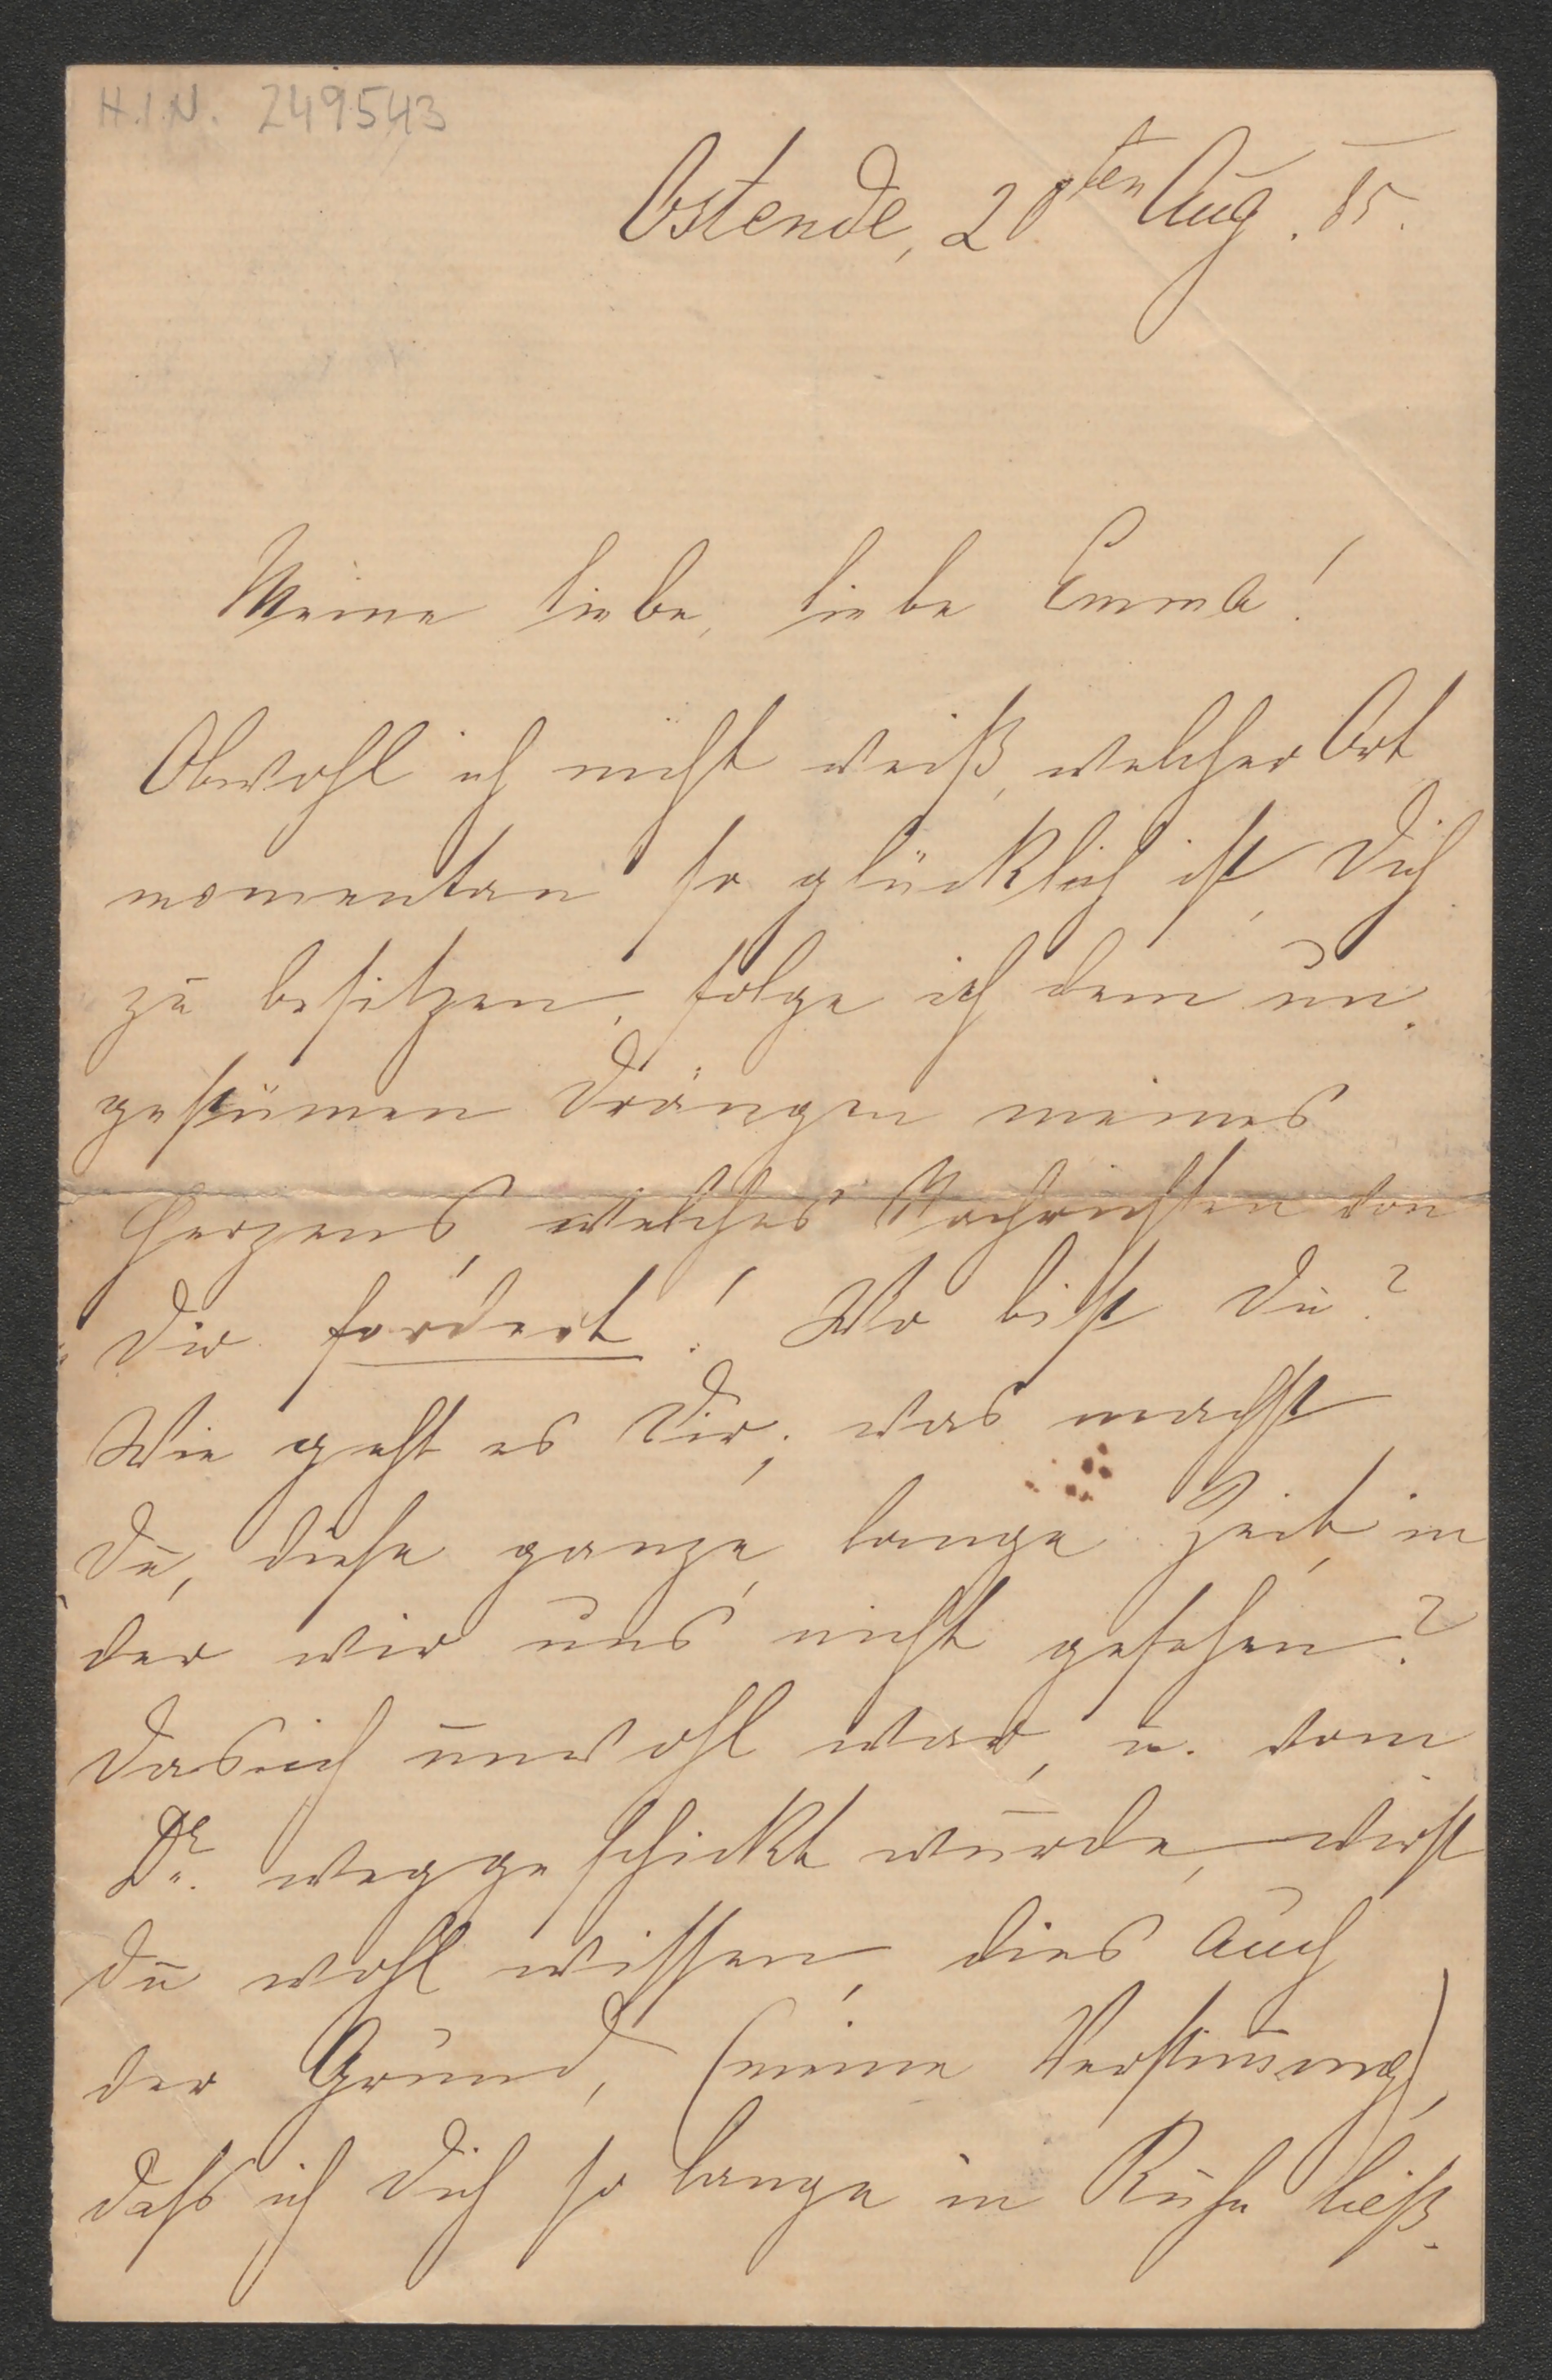 H.I.N. 249543
Ostende, 28ten Aug. 85.
Meine liebe, liebe Emma!
Obwohl ich nicht weiß, welcher Ort
momentan so glücklich ist, Dich
zu besitzen, folge ich dem un-
gestümen Drängen meines
Herzens, welches Nachrichten von
Dir fordert! Wo bist Du?
Wie geht es Dir, was machst
Du, diese ganze, lange Zeit, in
der wir uns nicht gesehen?
Das ich unwohl war, u. vom
Dr. weggeschickt wurde, wirst
Du wohl wissen, dies auch
der Grund, (meine Verstimmung),
dass ich Dich so lange in Ruhe ließ.